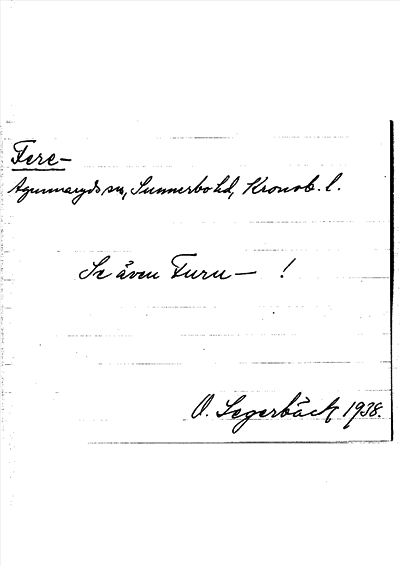 Fere-
Agunnaryds sn, Sunnerbo hd, Kronob. l.
Se även Furu- !
O. Segerbäck 1938.